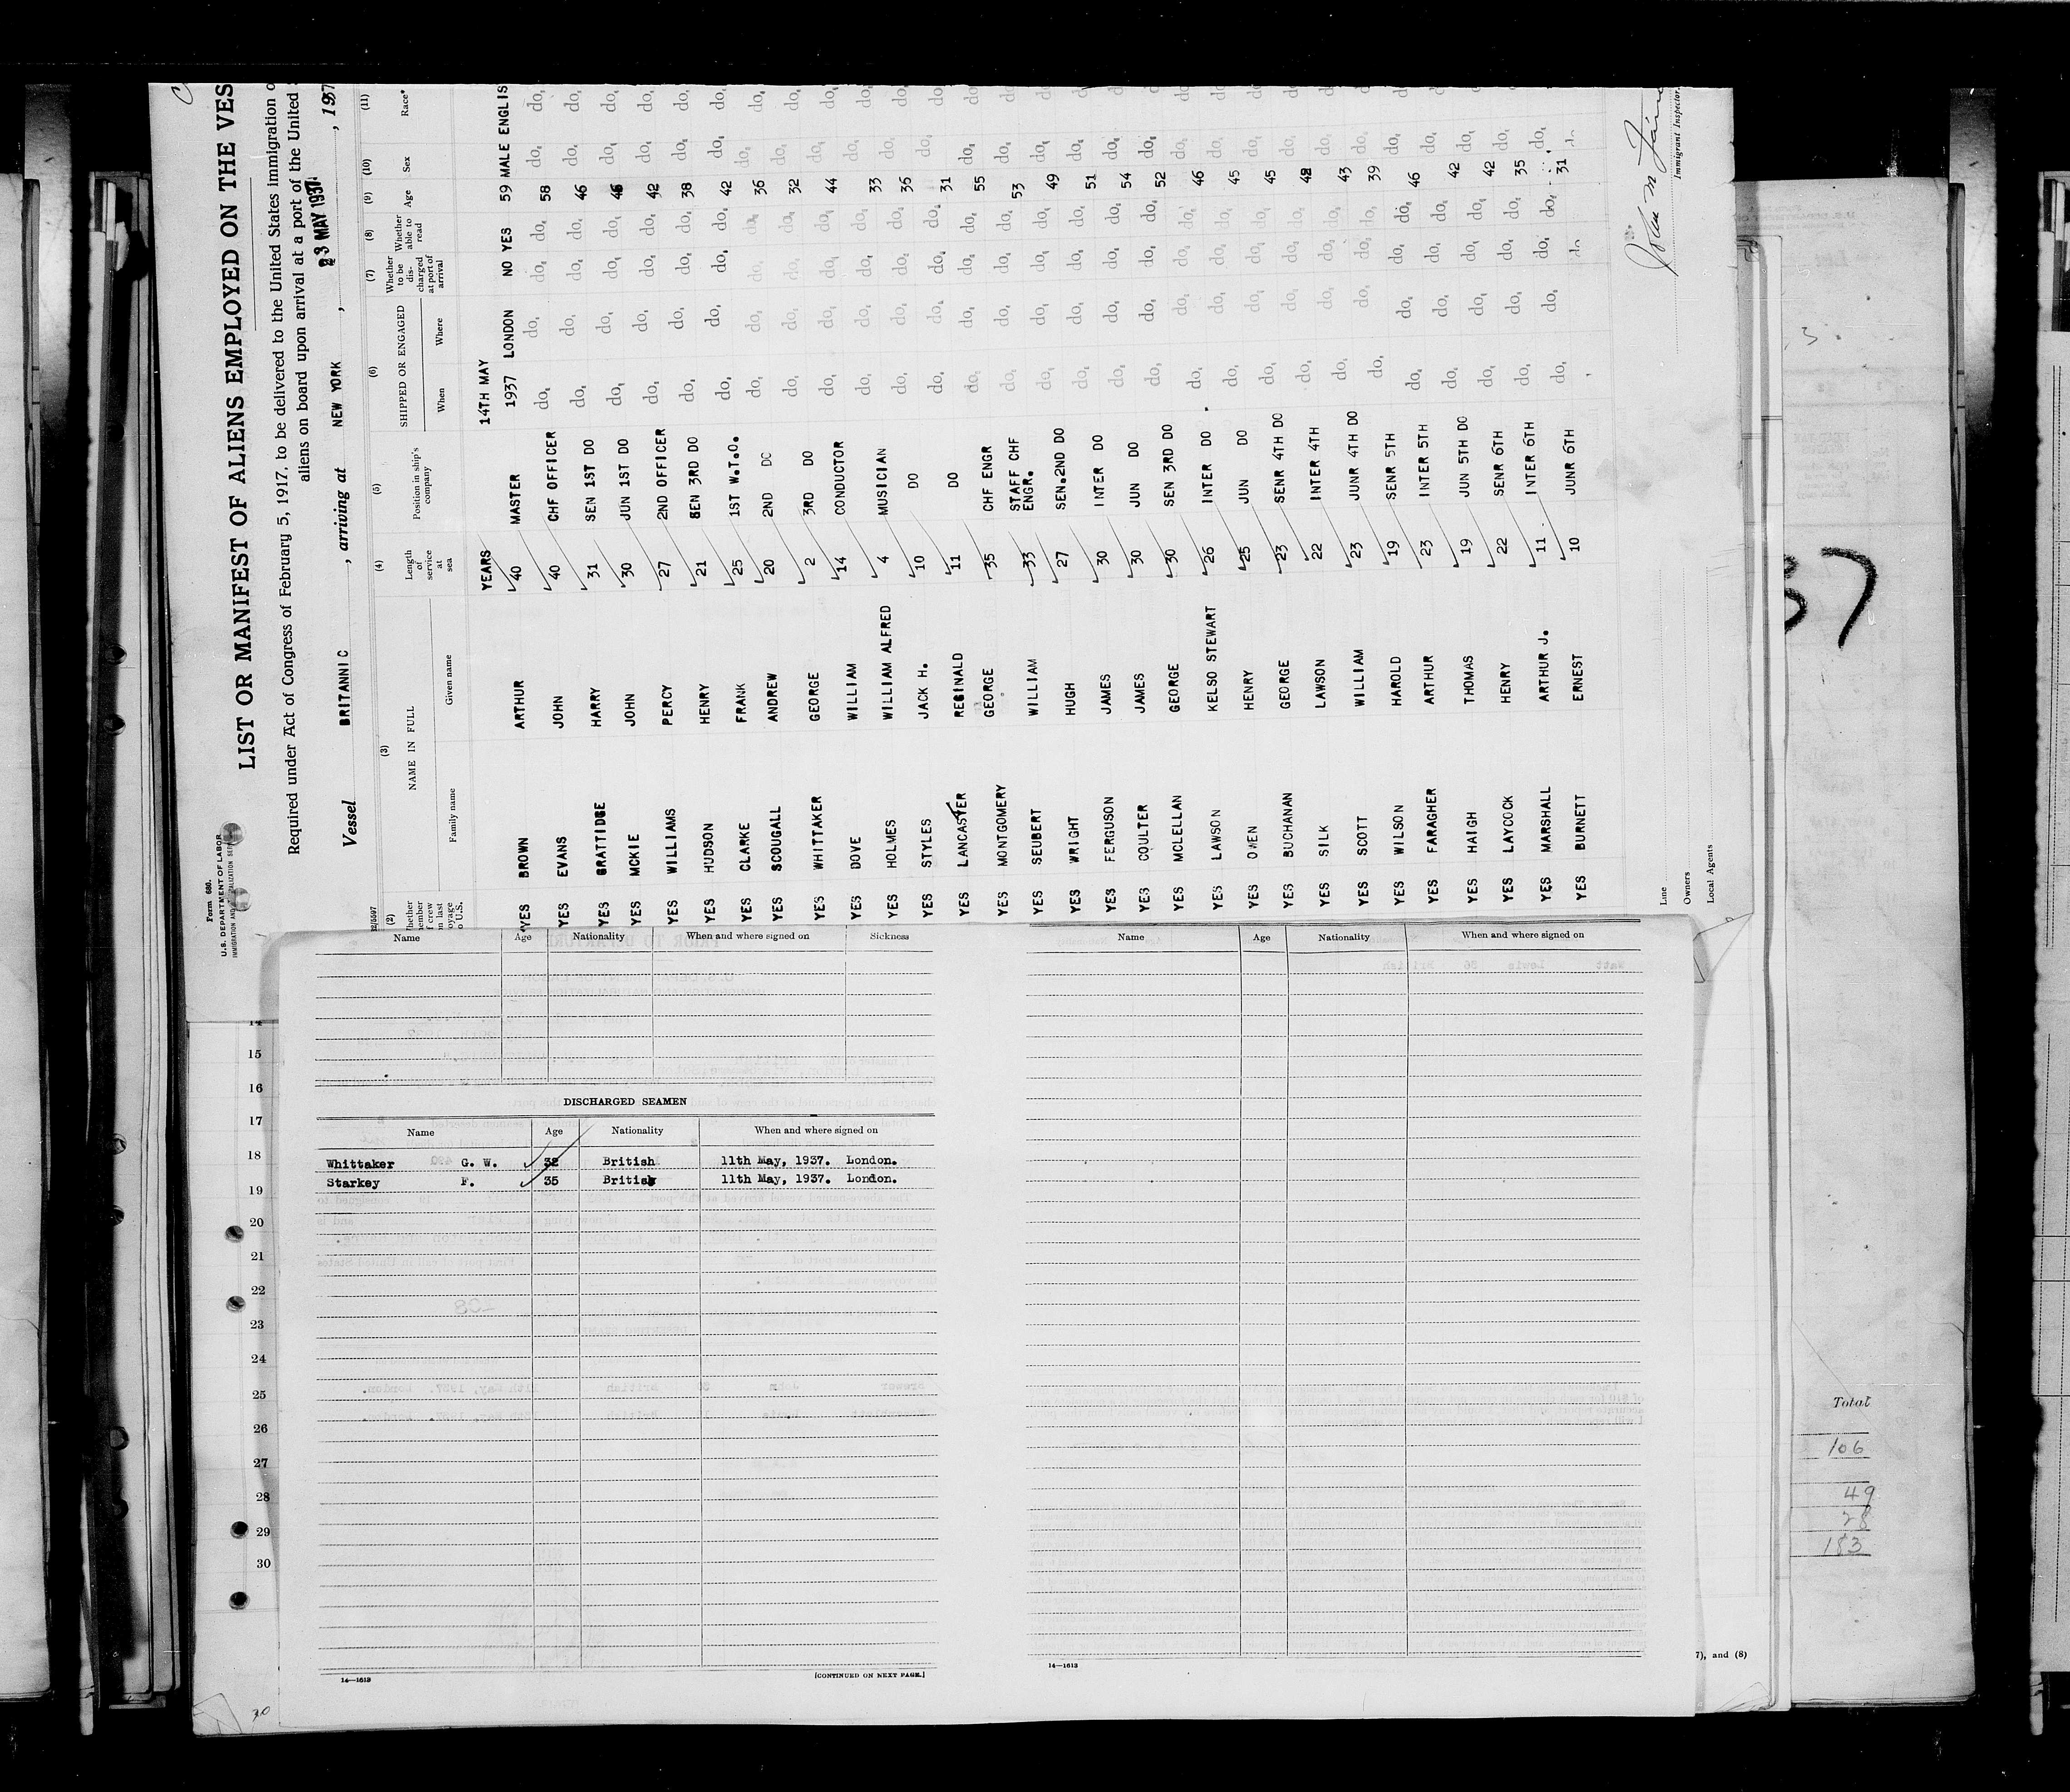 Form 680.
U.S. DEPARTMENT OF LABOR
LIST OR MANIFEST OF ALIENS EMPLOYED ON THE VES
Required under Act of Congress of February 5, 1917, to be delivered to the United States immigration o
aliens on board upon arrival at a port of the United
Vessel BRITANNIC , arriving at NEW YORK , 23 MAY 1937 , 1937
(2) (3) (4) (5) (6) (7) (8) (9) (10) (11)
NAME IN FULL Length of service at sea Position in ship's company SHIPPED OR ENGAGED Whether to be discharged at port of arrival Whether able to read Age Sex Race*
Family name Given name When Where
YEARS 14TH MAY
YES BROWN ARTHUR 40 MASTER 1937 LONDON NO YES 59 MALE ENGLIS
YES EVANS JOHN 40 CHF OFFICER do. do. do. do. 58 do. do.
YES GRATTIDGE HARRY 31 SEN 1ST DO do. do. do. do. 46 do. do.
YES MCKIE JOHN 30 JUN 1ST DO do. do. do. do. 46 do. do.
YES WILLIAMS PERCY 27 2ND OFFICER do. do. do. do. 42 do. do.
YES HUDSON HENRY 21 SEN 3RD DO do. do. do. do. 38 do. do.
YES CLARKE FRANK 25 1ST W.T.O. do. do. do. do. 42 do. do.
YES SCOUGALL ANDREW 20 2ND DO do. do. do. do. 36 do. do.
YES WHITTAKER GEORGE 2 3RD DO do. do. do. do. 32 do. do.
YES DOVE WILLIAM 14 CONDUCTOR do. do. do. do. 44 do. do.
YES HOLMES WILLIAM ALFRED 4 MUSICIAN do. do. do. do. 33 do. do.
YES STYLES JACK H. 10 DO do. do. do. do. 36 do. do.
YES LANCASTER REGINALD 11 DO do. do. do. do. 31 do. do.
YES MONTGOMERY GEORGE 35 CHF ENGR do. do. do. do. 55 do. do.
YES SEUBERT WILLIAM 33 STAFF CHF ENGR. do. do. do. do. 53 do. do.
YES WRIGHT HUGH 27 SEN.2ND DO do. do. do. do. 49 do. do.
YES FERGUSON JAMES 30 INTER DO do. do. do. do. 51 do. do.
YES COULTER JAMES 30 JUN DO do. do. do. do. 54 do. do.
YES MCLELLAN GEORGE 30 SEN 3RD DO do. do. do. do. 52 do. do.
YES LAWSON KELSO STEWART 26 INTER DO do. do. do. do. 46 do. do.
YES OWEN HENRY 25 JUN DO do. do. do. do. 45 do. do.
YES BUCHANAN GEORGE 23 SENR 4TH DO do. do. do. do. 45 do. do.
YES SILK LAWSON 22 INTER 4TH do. do. do. do. 42 do. do.
YES SCOTT WILLIAM 23 JUNR 4TH DO do. do. do. do. 43 do. do.
YES WILSON HAROLD 19 SENR 5TH do. do. do. do. 39 do. do.
YES FARAGHER ARTHUR 23 INTER 5TH do. do. do. do. 46 do. do.
YES HAIGH THOMAS 19 JUN 5TH DO do. do. do. do. 42 do. do.
YES LAYCOCK HENRY 22 SENR 6TH do. do. do. do. 42 do. do.
YES MARSHALL ARTHUR J. 11 INTER 6TH do. do. do. do. 35 do.
YES BURNETT ERNEST 10 JUNR 6TH 31
Line
Owners
Local Agents
Immigrant Inspector.
Name Age Nationality When and where signed on Sickness
DISCHARGED SEAMEN
Name Age Nationality When and where signed on
Whittaker G. W. 32 British 11th May, 1937. London.
Starkey F. 35 British 11th May, 1937. London.
14—1613 [CONTINUED ON NEXT PAGE.]
Name Age Nationality When and where signed on
14—1613
14
15
16
17
18
19
20
21
22
23
24
25
26
27
28
29
30
37
Total
106
49
28
183
7), and (8)